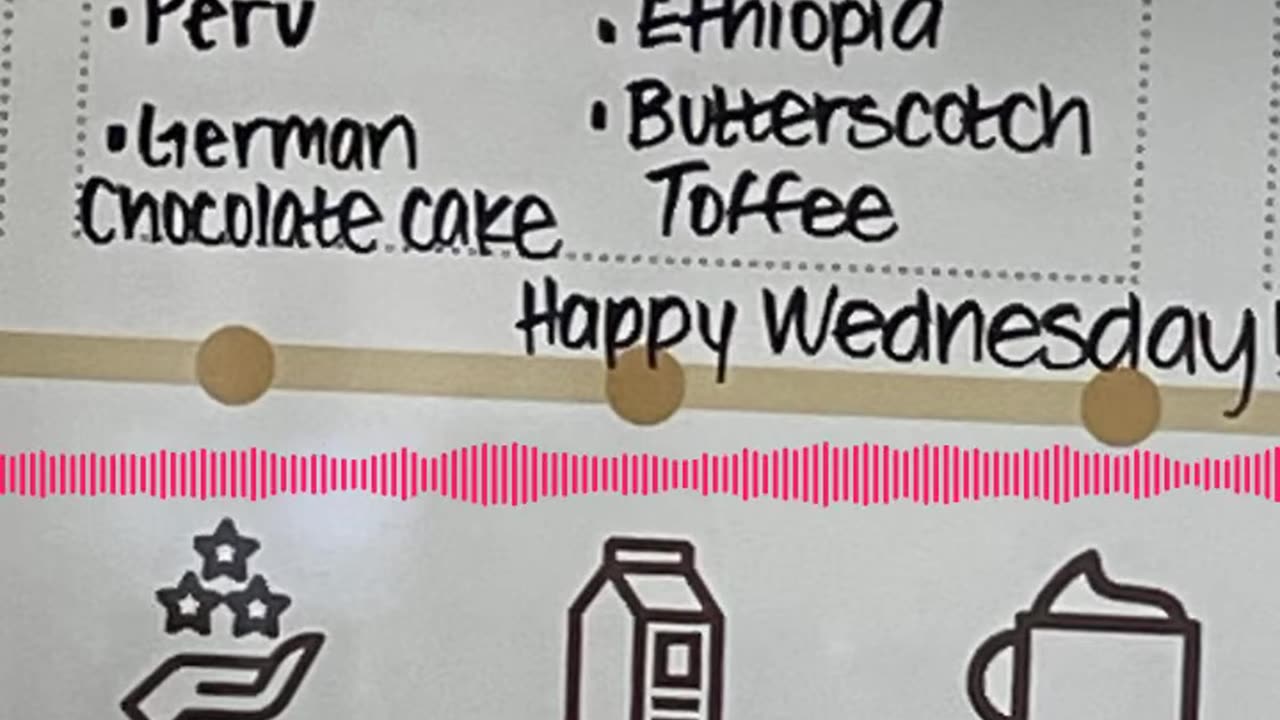 • Peru
• German
Chocolate cake
• Ethiopia
• Butterscotch
Toffee
Happy Wednesday!